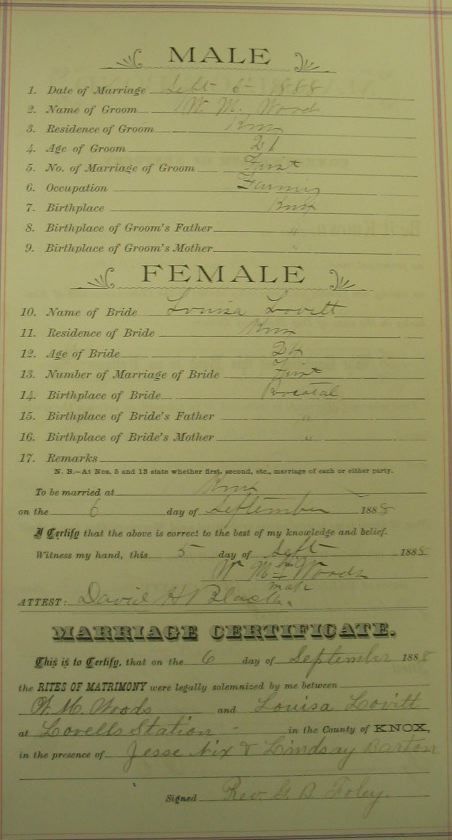 MALE
1. Date of Marriage Sept 6 1888
2. Name of Groom W. M. Wood
3. Residence of Groom Knox
4. Age of Groom 21
5. No. of Marriage of Groom First
6. Occupation Farming
7. Birthplace Knox
8. Birthplace of Groom's Father "
9. Birthplace of Groom's Mother "
FEMALE
10. Name of Bride Louisa Lovitt
11. Residence of Bride Knox
12. Age of Bride
13. Number of Marriage of Bride First
14. Birthplace of Bride
15. Birthplace of Bride's Father "
16. Birthplace of Bride's Mother "
17. Remarks
N. B.—At Nos. 5 and 13 state whether first, second, etc., marriage of each or either party.
To be married at Knox
on the 6 day of September 1888
I Certify that the above is correct to the best of my knowledge and belief.
Witness my hand, this 5 day of Sept 1888
W M his Woods
mark
ATTEST: David H Black
MARRIAGE CERTIFICATE.
This is to Certify, that on the 6 day of September 1888
the RITES OF MATRIMONY were legally solemnized by me between
W. M. Woods and Louisa Lovitt
at Lovells Station in the County of KNOX,
in the presence of Jesse Nix & Lindsay Barton
Signed Rev. G. B. Foley.